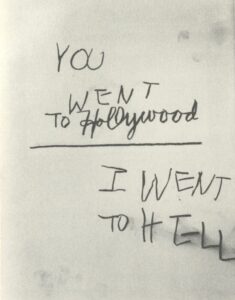 YOU
WENT
TO Hollywood
I WENT
TO HELL